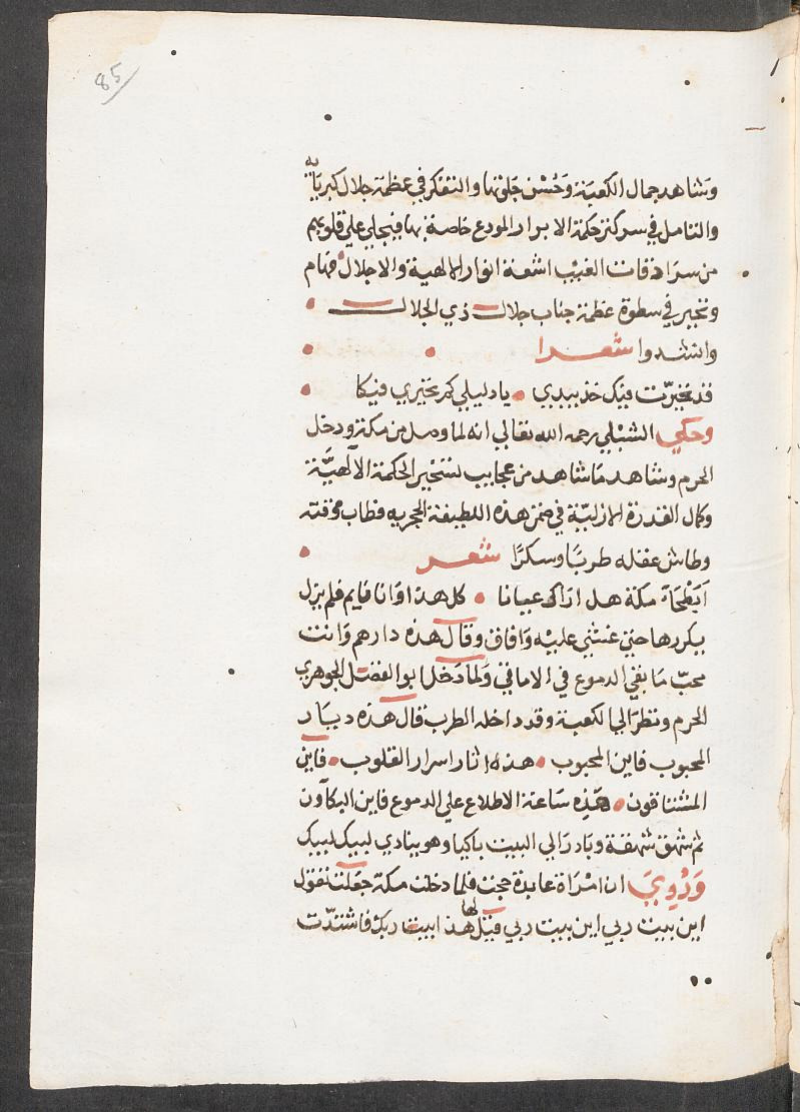 85
وشاهد جمال الكعبة وحُسْن جلوتها والتفكر في عظمة جلال كبريائه
والتامل في سر كنز حكمة الابرار المودع خاصة بها فينجلي علي قلوبهم
من سرادقات الغيب اشعة انوار الالهية والاجلال فهام
وتحير في سطوة عظمة جناب جلال ذي الجلال
وانشدوا شعرا
قد تحيرت فيك خذ بيدي يا دليلي كم تحيري فيكا
وحكي الشبلي رحمه الله تعالي انه لما وصل من مكة ودخل
الحرم وشاهد مَا شاهد من عجايب تسخير الحكمة الالهيَّة
وكمال القدرة الازليّة في ضمن هذه اللطيفة الحجريه فطاب وقته
وطاش عقله طربًا وسكرًا شعر
اَبَطْحَآءَ مكة هل اراك عيانا كل هذا وَانا قايم فلم يزل
يكررها حتي غشي عليْه وَافاق وقال هذه دارهم وَانت
محبّ مَا بقي الدموع في الاماقي وَلما دَخل ابو الفضل الجوهري
الحرم ونظرَ الي الكعبة وقد داخله الطرب قال هذه ديَار
المحبوب فاين المحبوب هذه اثار اسرار القلوب فاين
المشتاقون هَذِه سَاعة الاطلاع علي الدموع فاين البكآون
ثم شهق شهقة وبادرَ الي البيت باكيا وهو ينادي لبيك لبيك
وَرُوِيَ ان امْرَاة عابدة حجت فلما دخلت مكة جعَلت تقول
اين بيت ربي اين بيت ربي قيْل لها هذا بيت ربك فاشتدّت